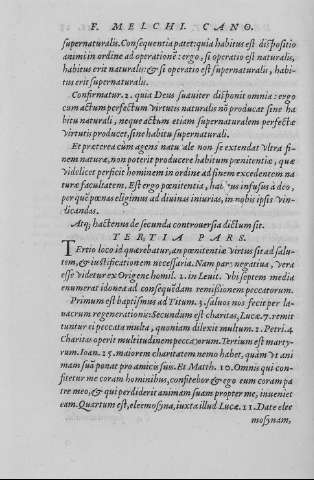 F. MELCHI. CANO.
supernaturalis. Consequentia patet: quia habitus est dispositio
animi in ordine ad operationē: ergo, si operatio est naturalis,
habitus erit naturalis: & si operatio est supernaturalis, habi-
tus erit supernaturalis.
Confirmatur. 2. quia Deus suauiter disponit omnia: ergo
cum actum perfectum virtutis naturalis nō producat sine ha
bitu naturali, neque actum etiam supernaturalem perfectæ
virtutis producet, sine habitu supernaturali.
Et præterea cùm agens natu ale non se extendat vltra fi-
nem naturæ, non poterit producere habitum pœnitentiæ, quæ
videlicet perficit hominem in ordine ad finem excedentem na
turæ facultatem. Est ergo pœnitentia, hab us infusus à deo,
per quē pœnas eligimus ad diuinas iniurias, in nobis ipsis vin-
dicandas.
Atq; hactenus de secunda controuersia dictum sit.
TERTIA PARS.
Tertio loco id quærebatur, an pœnitentiæ virtus sit ad salu-
tem, & iustificationem necessaria. Nam pars negatiua, vera
esse videtur ex Origene homil. 2. in Leuit. Vbi septem media
enumerat idonea ad consequēdam remissionem peccatorum.
Primum est baptismus ad Titum. 3. saluos nos fecit per la-
uacrum regenerationis: Secundum est charitas, Lucæ. 7. remit
tuntur ei peccata multa, quoniam dilexit multum. 1. Petri. 4
Charitas operit multitudinem peccatorum. Tertium est marty-
rium. Ioan. 15. maiorem charitatem nemo habet, quàm vt ani
mam suā ponat pro amicis suis. Et Matth. 10. Omnis qui con-
fitetur me coram hominibus, confitebor & ego eum coram pa
tre meo, & qui perdiderit animam suam propter me, inueniet
eam. Quartum est, eleemosyna, iuxta illud Lucæ. 11. Date elee
mosynam,